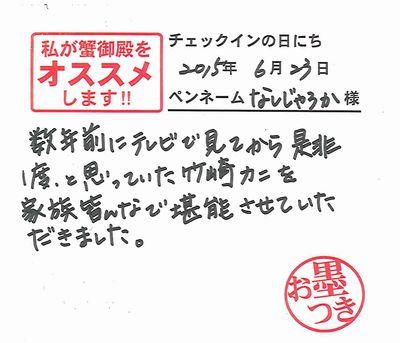 私が蟹御殿を
オススメ
します!!
チェックインの日にち
2015年 6月23日
ペンネーム なしじゃろか 様
数年前にテレビで見てから是非
1度、と思っていた竹崎カニを
家族皆んなで堪能させていた
だきました。
墨
おつき